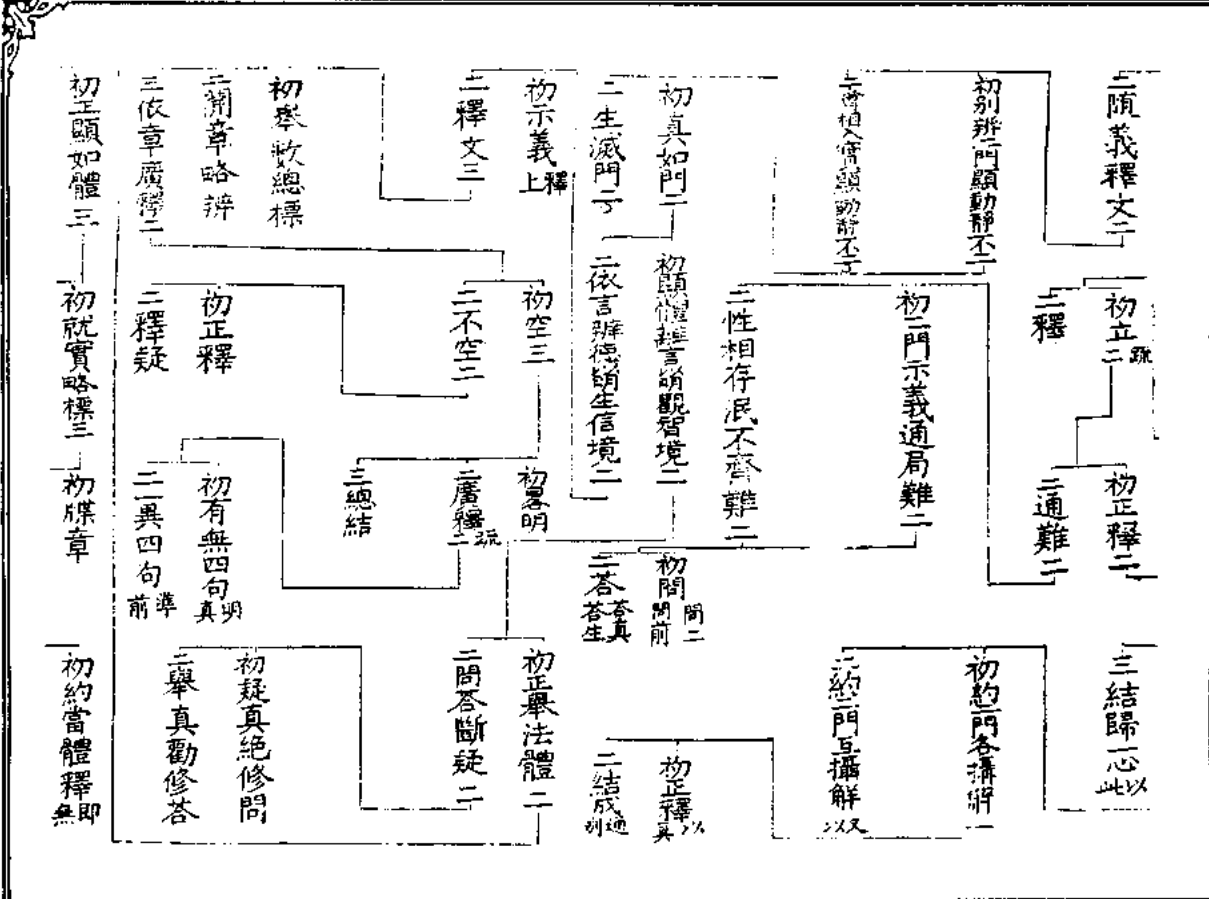 二隨義釋文二
初立二疏
二釋
初正釋二
二通難二
三結歸一心以此
初別辨二門顯動靜不二
初二門示義通局難二
二性相存泯不齊難二
初約二門各攝解一
二約二門互攝解又以
初真如門二
二生滅門
初顯體離言明觀智境二
二依言辨德明生信境二
初問問二問前
二答答真答生
初正釋以真
二結成通別
初示義釋上
二釋文三
初空三
二不空二
初畧明
二廣釋二疏
三總結
初正舉法體二
二問答斷疑二
初舉數總標
二開章略辨
三依章廣釋二
初正釋
二釋疑
初有無四句明真
二一異四句準前
初疑真絕修問
二舉真勸修答
初正顯如體三
初就實略標三
初牒章
初約當體釋即無